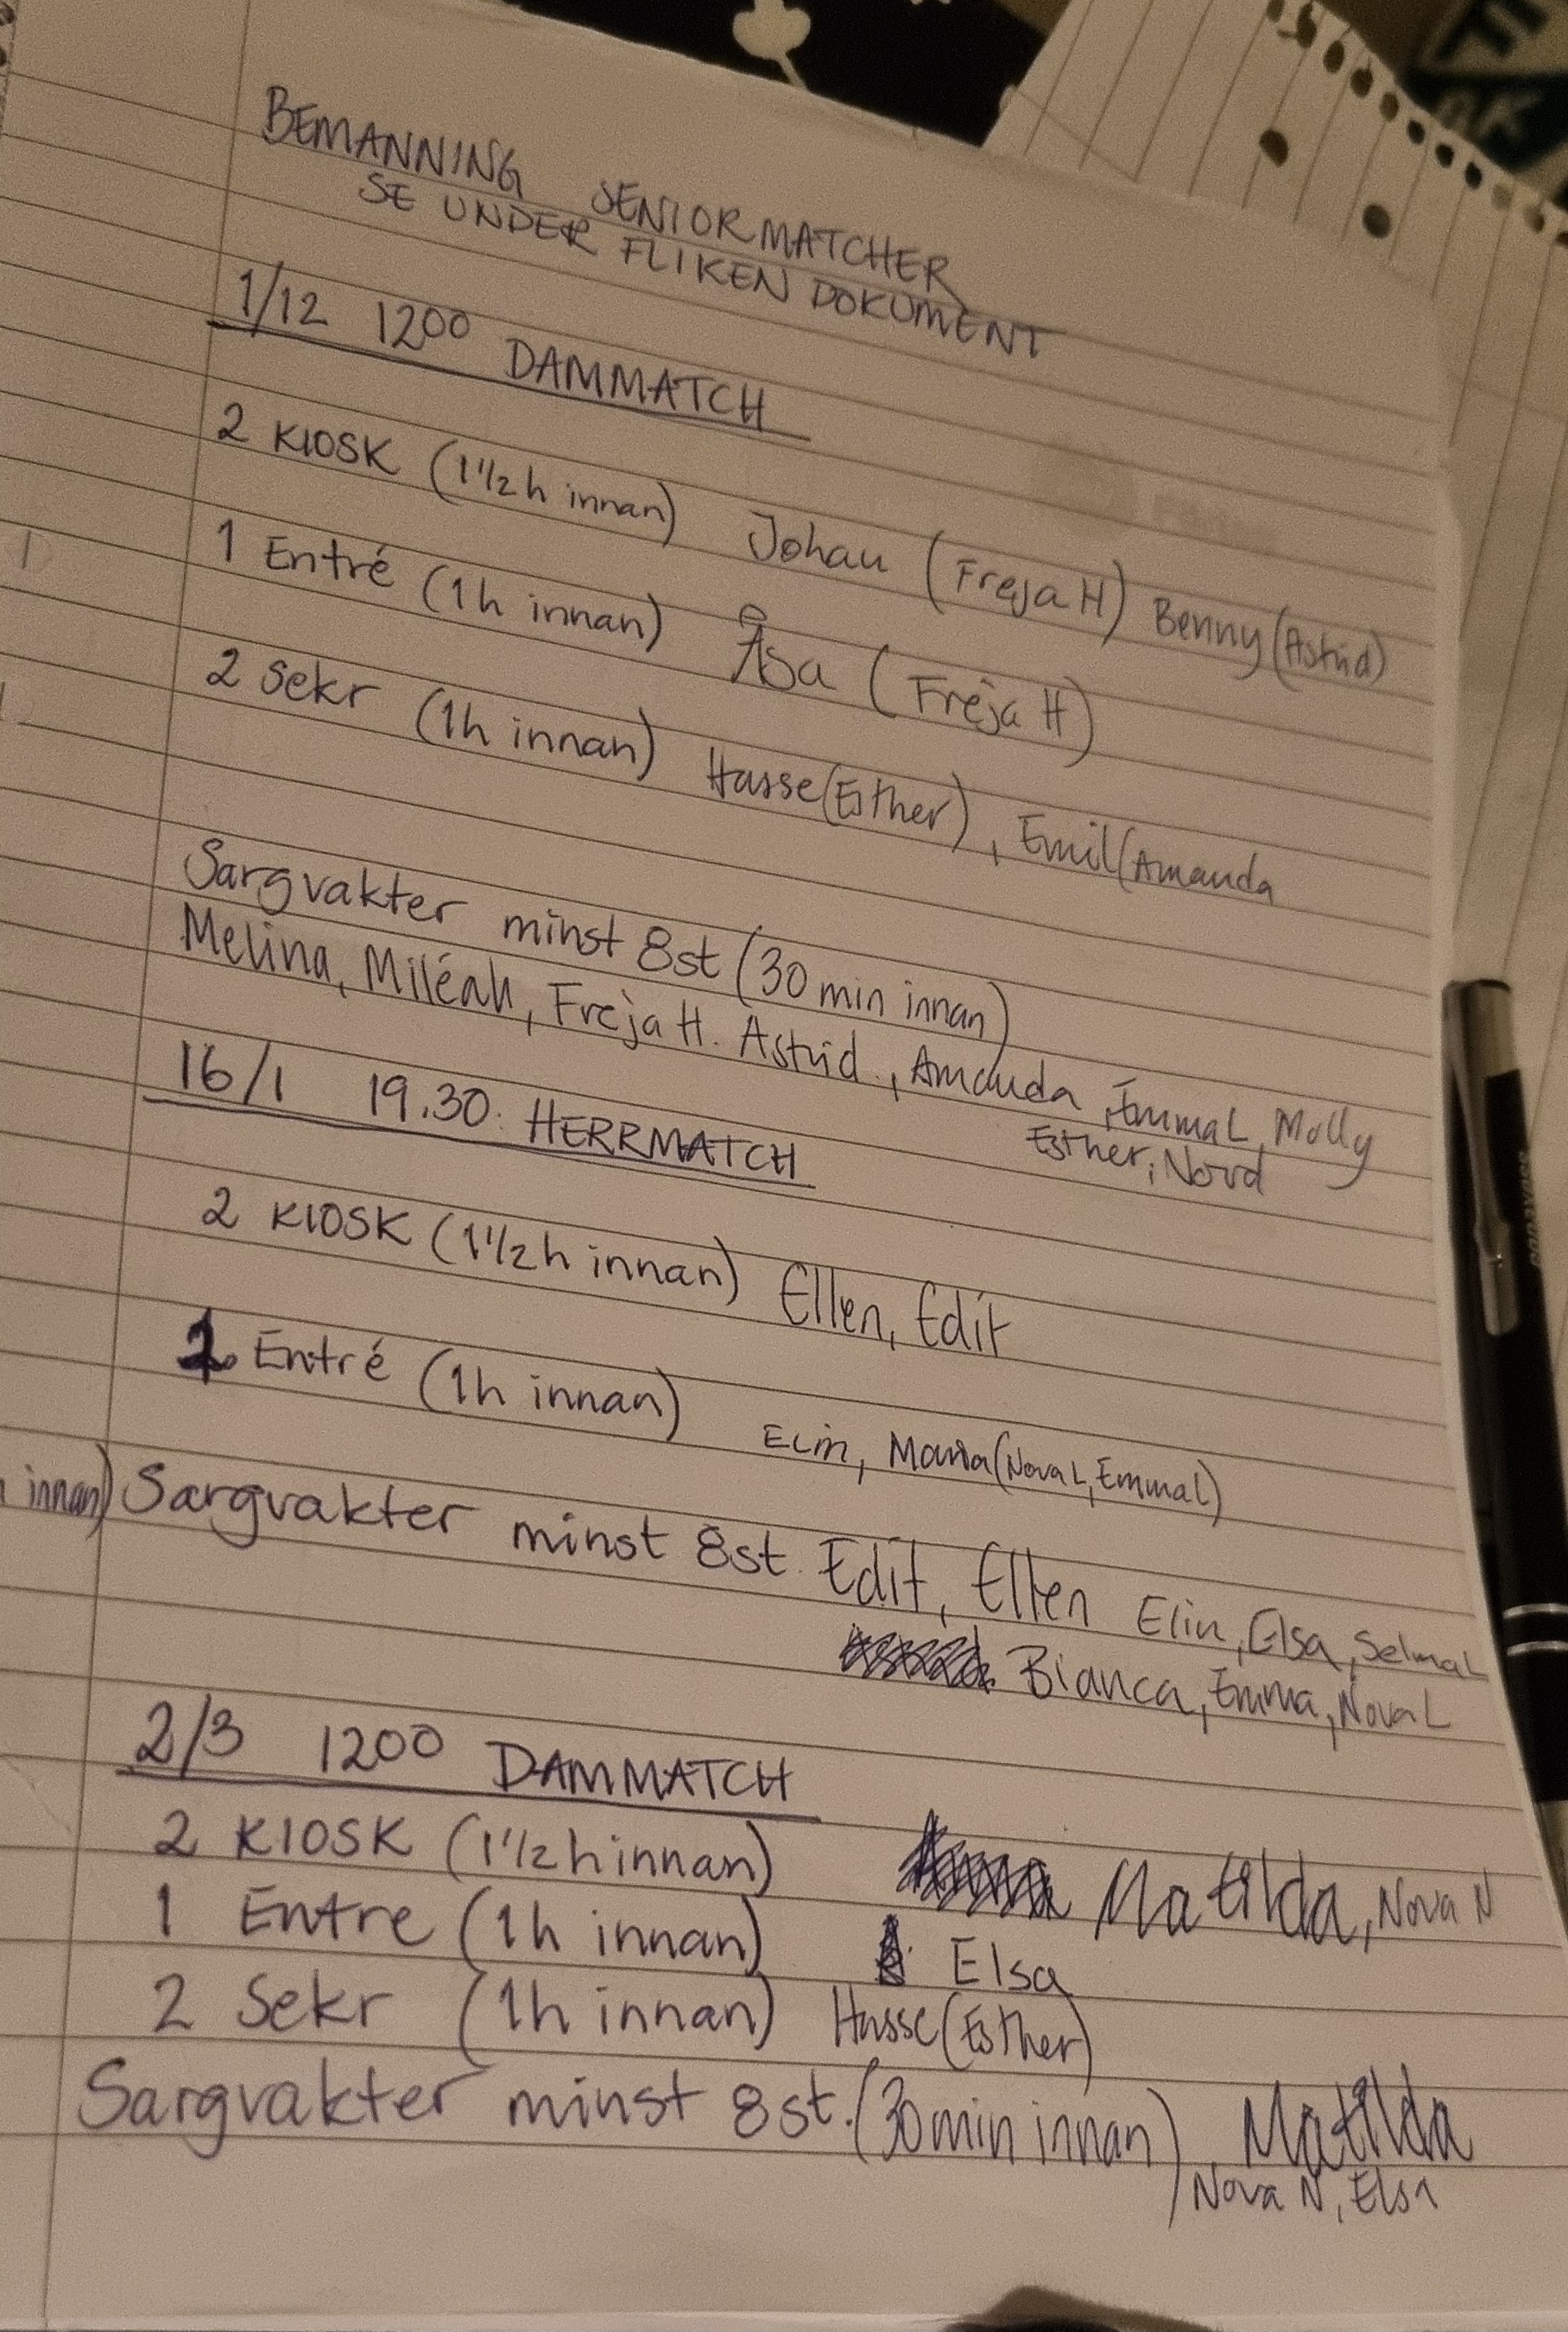 BEMANNING SENIORMATCHER
SE UNDER FLIKEN DOKUMENT
1/12 1200 DAMMATCH
2 KIOSK (1 1/2 h innan) Johan (Freja H) Benny (Astrid)
1 Entré (1h innan) Åsa (Freja H)
2 Sekr (1h innan) Hasse (Esther), Emil (Amanda
Sargvakter minst 8st (30 min innan)
Melina, Miléah, Freja H. Astrid., Amanda, Emma L, Molly
Esther, Nord
16/1 19.30. HERRMATCH
2 KIOSK (1 1/2 h innan) Ellen, Edit
1 Entré (1h innan) Elin, Maria (Nova L, Emma L)
innan) Sargvakter minst 8st. Edit, Ellen Elin, Elsa, Selma L
Bianca, Emma, Nova L
2/3 1200 DAMMATCH
2 KIOSK (1 1/2 h innan) Matilda, Nova N
1 Entre (1h innan) Elsa
2 Sekr (1h innan) Hasse (Esther)
Sargvakter minst 8st. (30min innan), Matilda
Nova N, Elsa